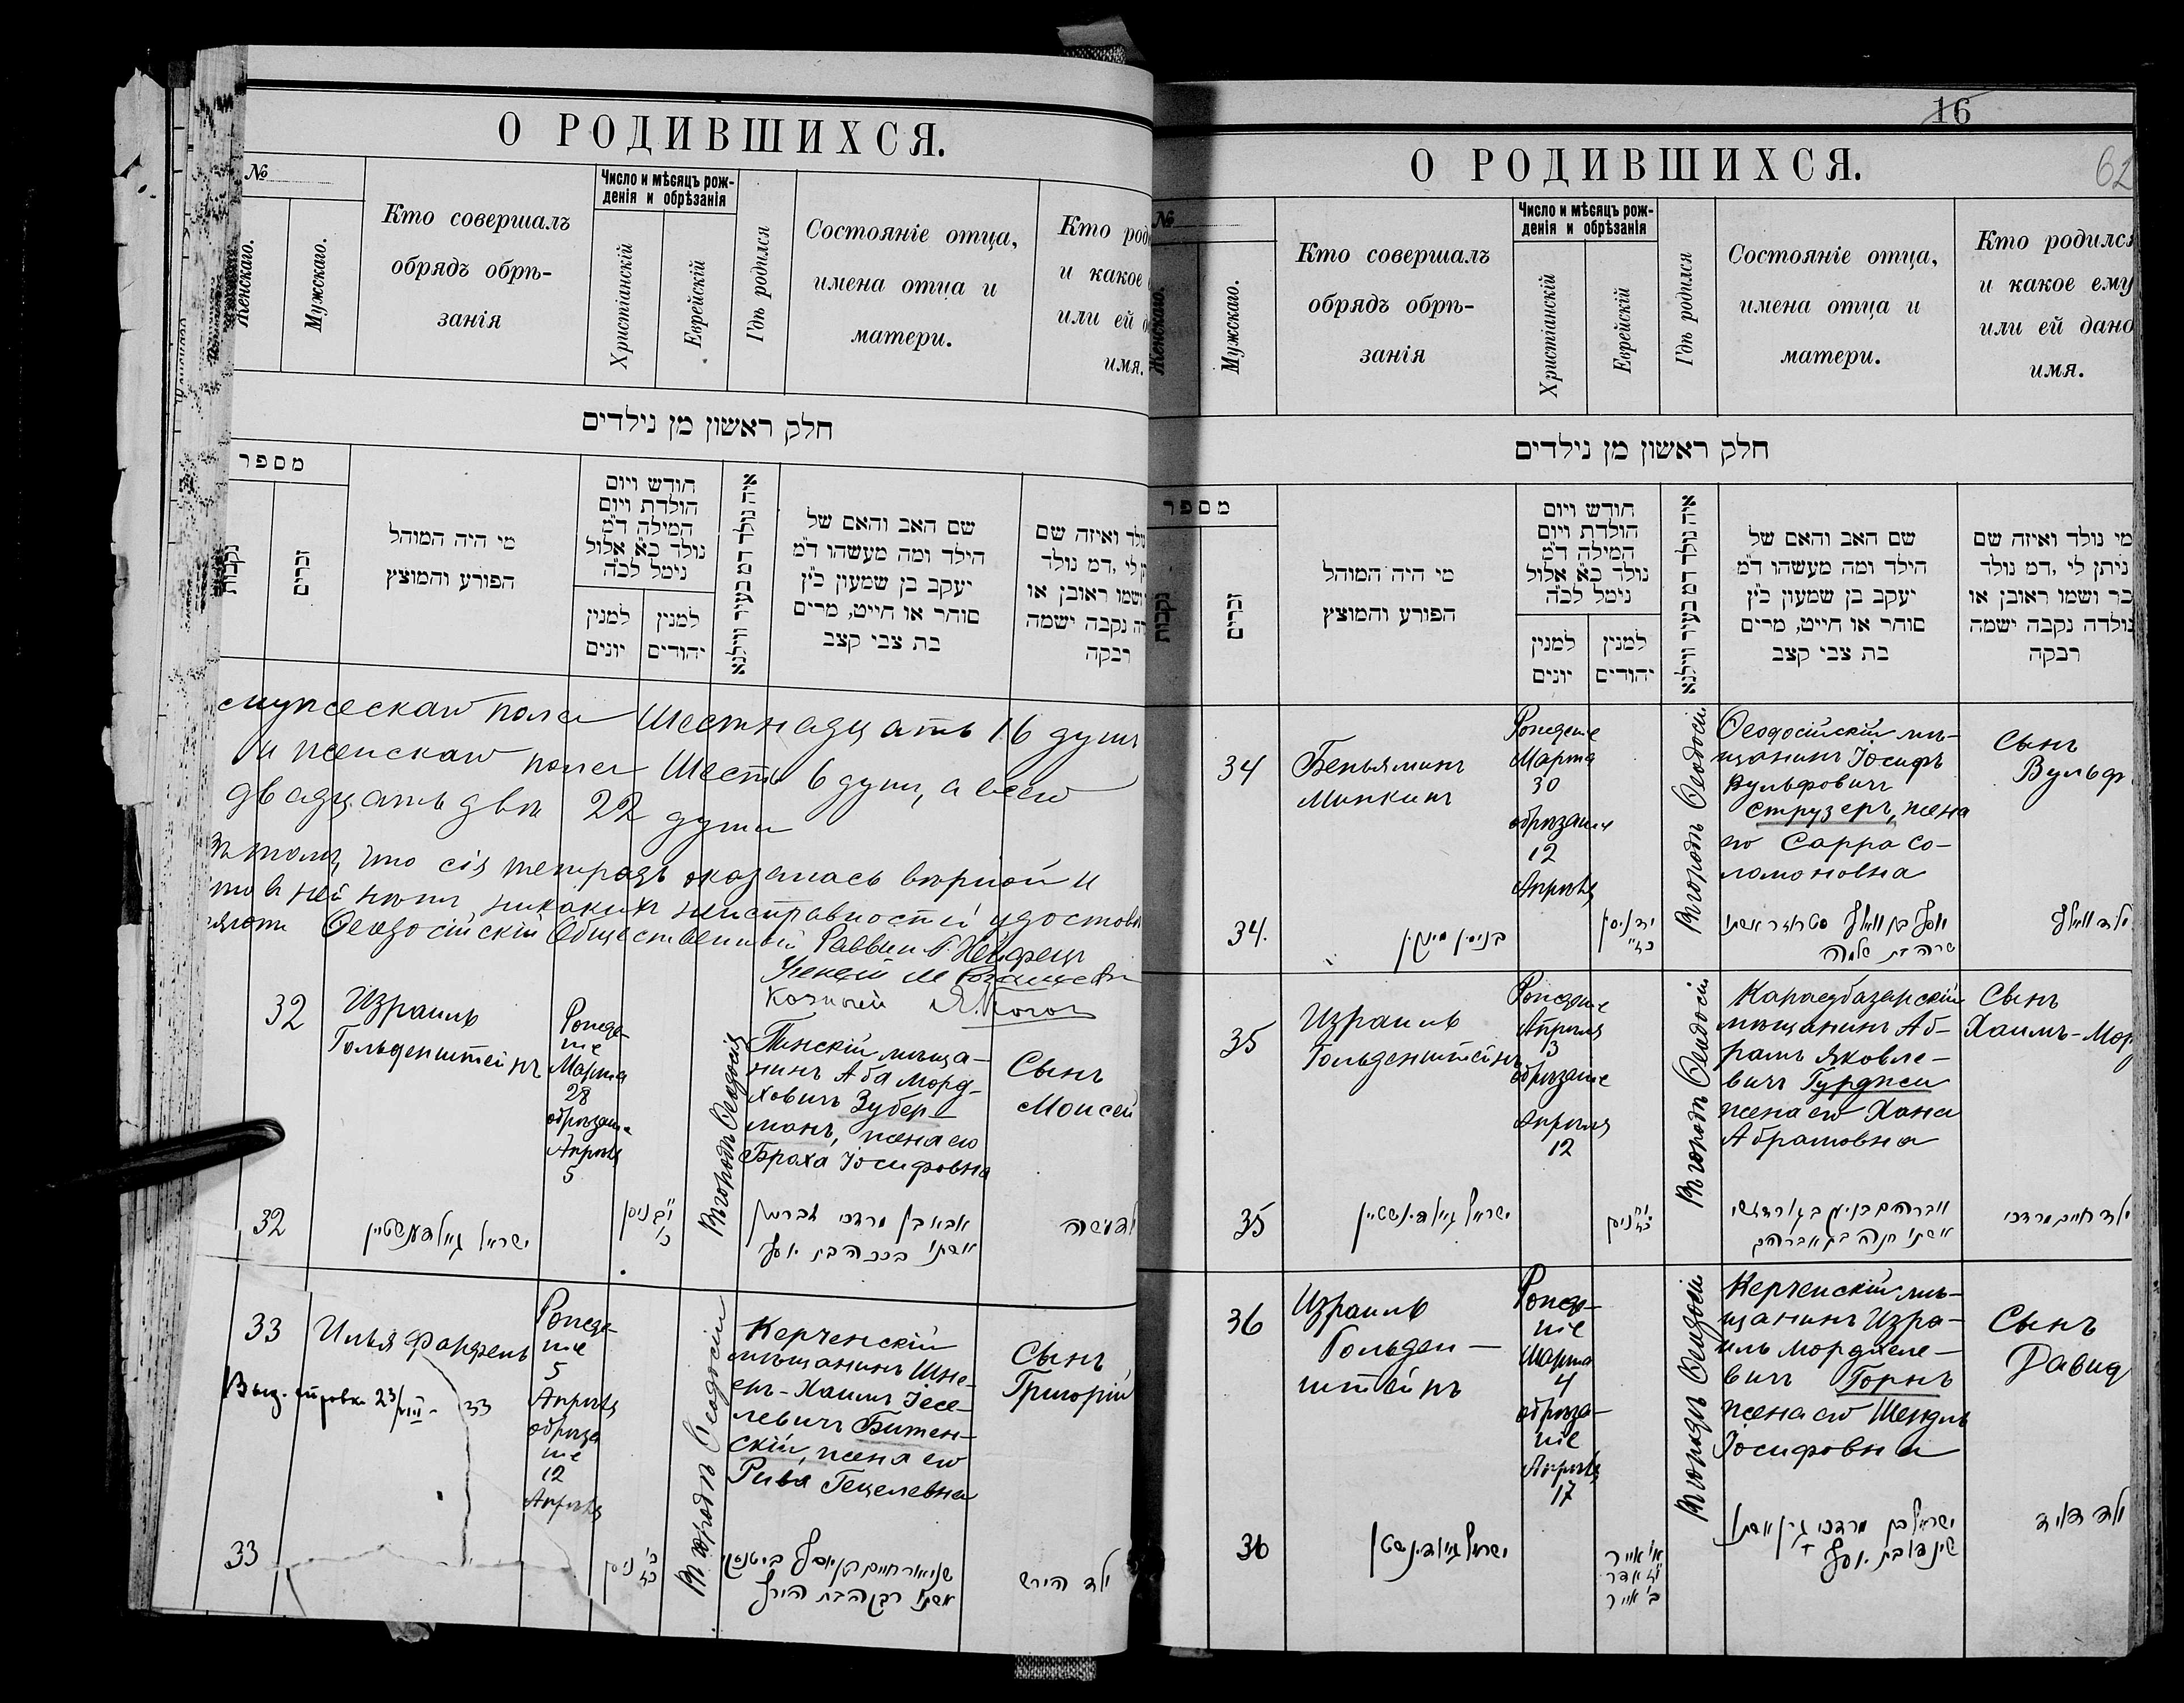 О РОДИВШИХСЯ.
№
Женскаго.
Мужскаго.
Кто совершалъ
обрядъ обрѣ-
занія
Число и мѣсяцъ рож-
денія и обрѣзанія
Христіанскій
Еврейскій
Гдѣ родился
Состояніе отца,
имена отца и
матери.
Кто
и какое
или ей
имя.
חלק ראשון מן נילדים
מספר
נקבות
זכרים
מי היה המוהל
הפורע והמוצץ
חודש ויום
הולדת ויום
המילה ד״מ
נולד כ״א אלול
נימל לכ״ה
למנין
יונים
למנין
יהודים
איה נולד דמ בעיר ווילנא
שם האב והאם של
הילד ומה מעשהו ד״מ
יעקב בן שמעון כ״ץ
סוחר או חייט, מרים
בת צבי קצב
ואיזה שם
לי, דמ נולד
ושמו ראובן או
נקבה ישמה
רבקה
мужескаго пола Шестнадцать 16 душъ
и женскаго пола Шесть 6 душъ, а всего
двадцать двѣ 22 души
томъ, что сія тетрадь оказалась вѣрной и
в ней нѣтъ никакихъ неисправностей удостовѣ
ряютъ Ѳеодосійскій Общественный Раввинъ Хейфецъ
Ученый М
Казначей
32
Израиль
Гольденштейнъ
Рожде-
ніе
Марта
28
обрѣзаніе
Апрѣля
5
Въ городѣ Ѳеодосіи
Пинскій мѣща-
нинъ Аба Морд-
ховичъ Зубер-
манъ, жена его
Браха Іосифовна
Сынъ
Моисей
32
ישראל גאלדענשטיין
ניסן
אבא בן מרדכי
אשתו ברכה בת יוסף
ילד משה
33
Илья Фарфель
33
Рожде-
ніе
5
Апрѣля
обрѣза
ніе
12
Апрѣля
Въ городѣ Ѳеодосіи
Керченскій
мѣщанинъ Шне-
еръ-Хаимъ Іосе-
левичъ Битен-
скій, жена его
Рива Гецелевна
Сынъ
Григорій
33
ניסן
שניאור חיים בן יוסף ביטנסקי
אשתו רבקה בת
ילד הירש
16
62
О РОДИВШИХСЯ.
№
Женскаго.
Мужскаго.
Кто совершалъ
обрядъ обрѣ-
занія
Число и мѣсяцъ рож-
денія и обрѣзанія
Христіанскій
Еврейскій
Гдѣ родился
Состояніе отца,
имена отца и
матери.
Кто родился
и какое ему
или ей дано
имя.
חלק ראשון מן נילדים
מספר
נקבות
זכרים
מי היה המוהל
הפורע והמוצץ
חודש ויום
הולדת ויום
המילה ד״מ
נולד כ״א אלול
נימל לכ״ה
למנין
יונים
למנין
יהודים
איה נולד דמ בעיר ווילנא
שם האב והאם של
הילד ומה מעשהו ד״מ
יעקב בן שמעון כ״ץ
סוחר או חייט, מרים
בת צבי קצב
מי נולד ואיזה שם
ניתן לי, דמ נולד
בר ושמו ראובן או
נולדה נקבה ישמה
רבקה
34
Беньяминъ
Минкинъ
Рожденіе
Марта
30
обрѣзаніе
12
Апрѣля
Въ городѣ Ѳеодосіи
Ѳеодосійскій мѣ-
щанинъ Іосифъ
Вульфовичъ
Струзеръ, жена
его Сарра Со-
ломоновна
Сынъ
Вульф
34.
בנימין מינקין
ניסן
יוסף בן וואלף סטרוזר אשתו
שרה בת שלמה
ילד וואלף
35
Израиль
Гольденштейнъ
Рожденіе
Апрѣля
3
обрѣзаніе
Апрѣля
12
Въ городѣ Ѳеодосіи
Карасубазарскій
мѣщанинъ Аб-
рамъ Яковле-
вичъ Гурджи
жена его Хана
Абрамовна
Сынъ
Хаимъ-Мор
35
ישראל גאלדינשטיין
ניסן
אברהם בן יעקב גורדזשי
אשתו חנה בת אברהם
ילד חיים מרדכי
36
Израиль
Гольден-
штейнъ
Рожде-
ніе
Марта
4
обрѣза-
ніе
Апрѣля
17
Въ городѣ Ѳеодосіи
Керченскій мѣ-
щанинъ Изра-
иль Мордхеле-
вичъ Горнъ
жена его Шендль
Іосифовна
Сынъ
Давид
36
ישראל גאלדינשטין
א׳ אייר
אדר
ב׳ אייר
ישראל בן מרדכי גורן אשתו
שינדל בת יוסף
ילד דוד